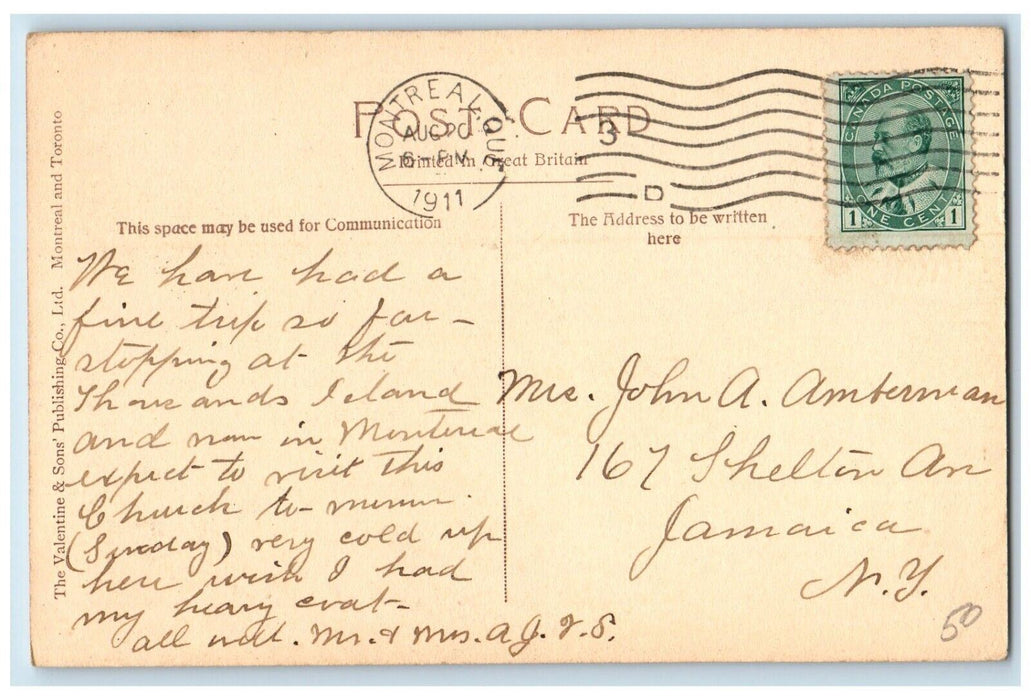 POST CARD
Printed in Great Britain
MONTREAL, QUE.
AUG 20
6 - PM
1911
3
D
CANADA POSTAGE
1 ONE CENT 1
This space may be used for Communication
The Address to be written
here
The Valentine & Sons' Publishing Co., Ltd. Montreal and Toronto
We have had a
fine trip so far -
stopping at the
Thousands Island
and now in Montreal
expect to visit this
Church to-
(Sunday) very cold up
here wish I had
my heavy coat -
all well. Mr. & Mrs. A. J. V. S.
Mrs. John A. Amberman
167 Shelton Av
Jamaica
N.Y.
50